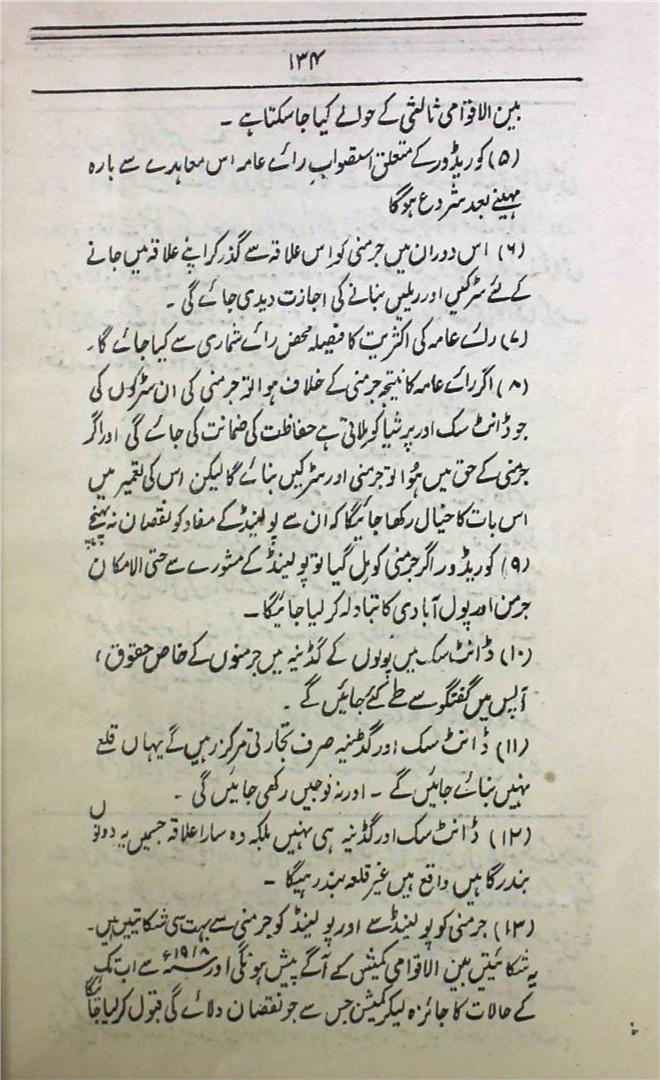 ۱۳۴
بین الاقوامی ثالثی کے حوالے کیا جا سکتا ہے ۔
(۵) کوریڈور کے متعلق استصوابِ رائے عامہ اس معاہدے سے بارہ
مہینے بعد شروع ہوگا
(۶) اس دوران میں جرمنی کو اس علاقہ سے گذر کر اپنے علاقہ میں جانے
کے لئے سڑکیں اور ریلیں بنانے کی اجازت دیدی جائے گی ۔
(۷) رائے عامہ کی اکثریت کا فیصلہ محض رائے شماری سے کیا جائے گا۔
(۸) اگر رائے عامہ کا نتیجہ جرمنی کے خلاف ہوا تو جرمنی کی ان سڑکوں کی
جو ڈانٹ سک اور پرشیا کو ملاتی ہے حفاظت کی ضمانت کی جائے گی اور اگر
جرمنی کے حق میں ہُوا تو جرمنی اور سڑکیں بنائے گا لیکن اس کی تعمیر میں
اس بات کا خیال رکھا جائیگا کہ ان سے پولینڈ کے مفاد کو نقصان نہ پہنچے
(۹) کوریڈور اگر جرمنی کو مل گیا تو پولینڈ کے مشورے سے حتی الامکان
جرمن اور پول آبادی کا تبادلہ کر لیا جائیگا۔
(۱۰) ڈانٹ سک میں پولوں کے گڈنیہ میں جرمنوں کے خاص حقوق،
آپس میں گفتگو سے طے کئے جائیں گے ۔
(۱۱) ڈانٹ سک اور گڈنیہ صرف تجارتی مرکز رہیں گے یہاں قلعے
نہیں بنائے جائیں گے ۔ اور نہ فوجیں رکھی جائیں گی ۔
(۱۲) ڈانٹ سک اور گڈنیہ ہی نہیں بلکہ وہ سارا علاقہ جسمیں یہ دونوں
بندرگاہیں واقع ہیں غیر قلعہ بند رہیگا ۔
(۱۳) جرمنی کو پولینڈ سے اور پولینڈ کو جرمنی سے بہت سی شکائتیں ہیں۔
یہ شکائتیں بین الاقوامی کمیشن کے آگے پیش ہونگی اور سنہ ۱۹۱۸ء سے اب تک
کے حالات کا جائزہ لیکر کمیشن جس سے جو نقصان دلائے گی قبول کر لیا جائیگا